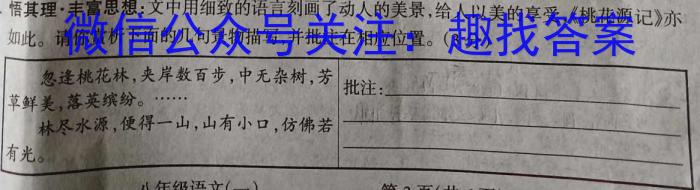 悟其理·丰富思想:文中用细致的语言刻画了动人的美景,给人以美的享受,《桃花源记》亦
如此。请你赏析下面的几句景物描写,并批注在相应位置。
微信公众号关注:趣找答案
忽逢桃花林,夹岸数百步,中无杂树,芳
草鲜美,落英缤纷。……
林尽水源,便得一山,山有小口,仿佛若
有光。
批注:
八年级语文(一)